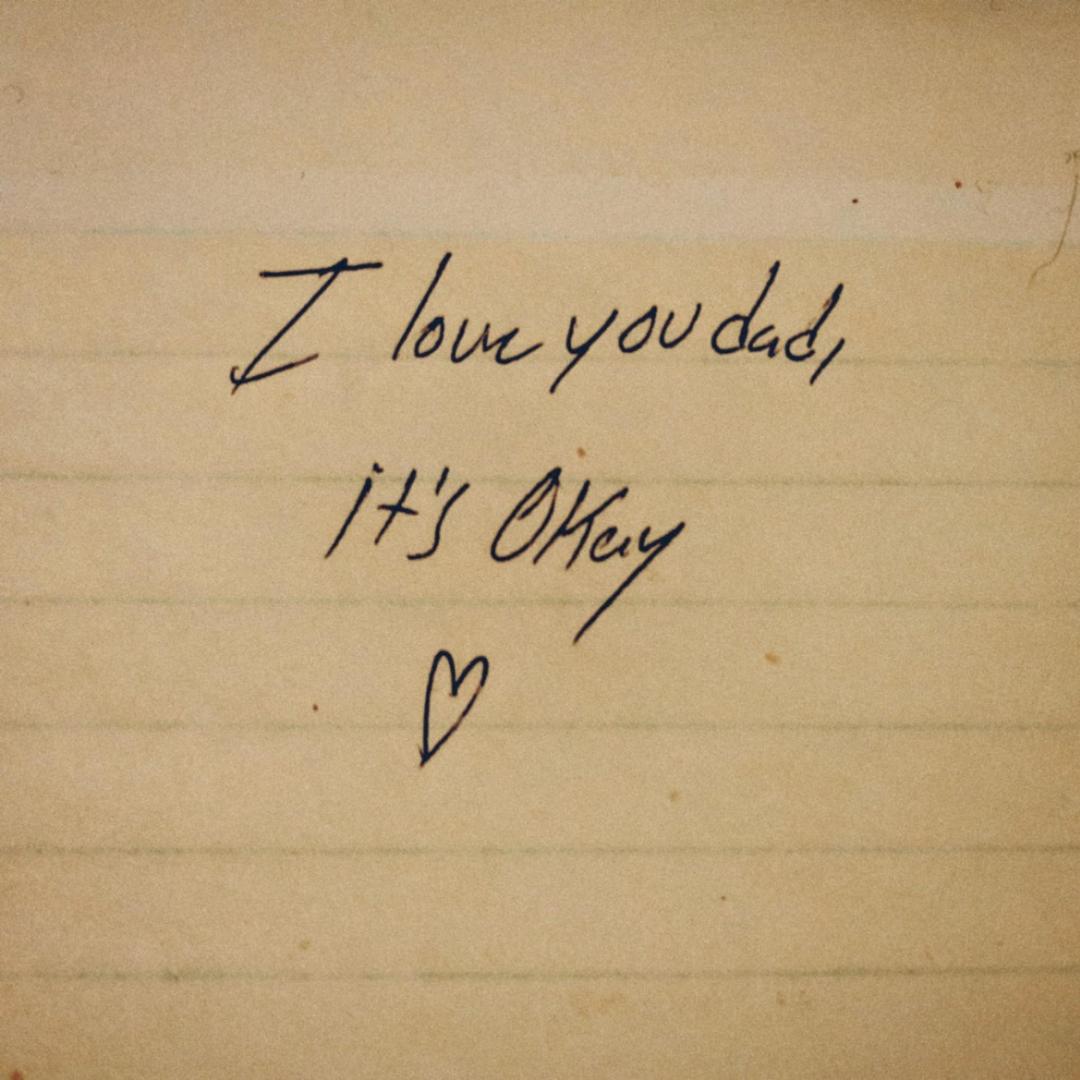 I love you dad,
it's Okay
♡